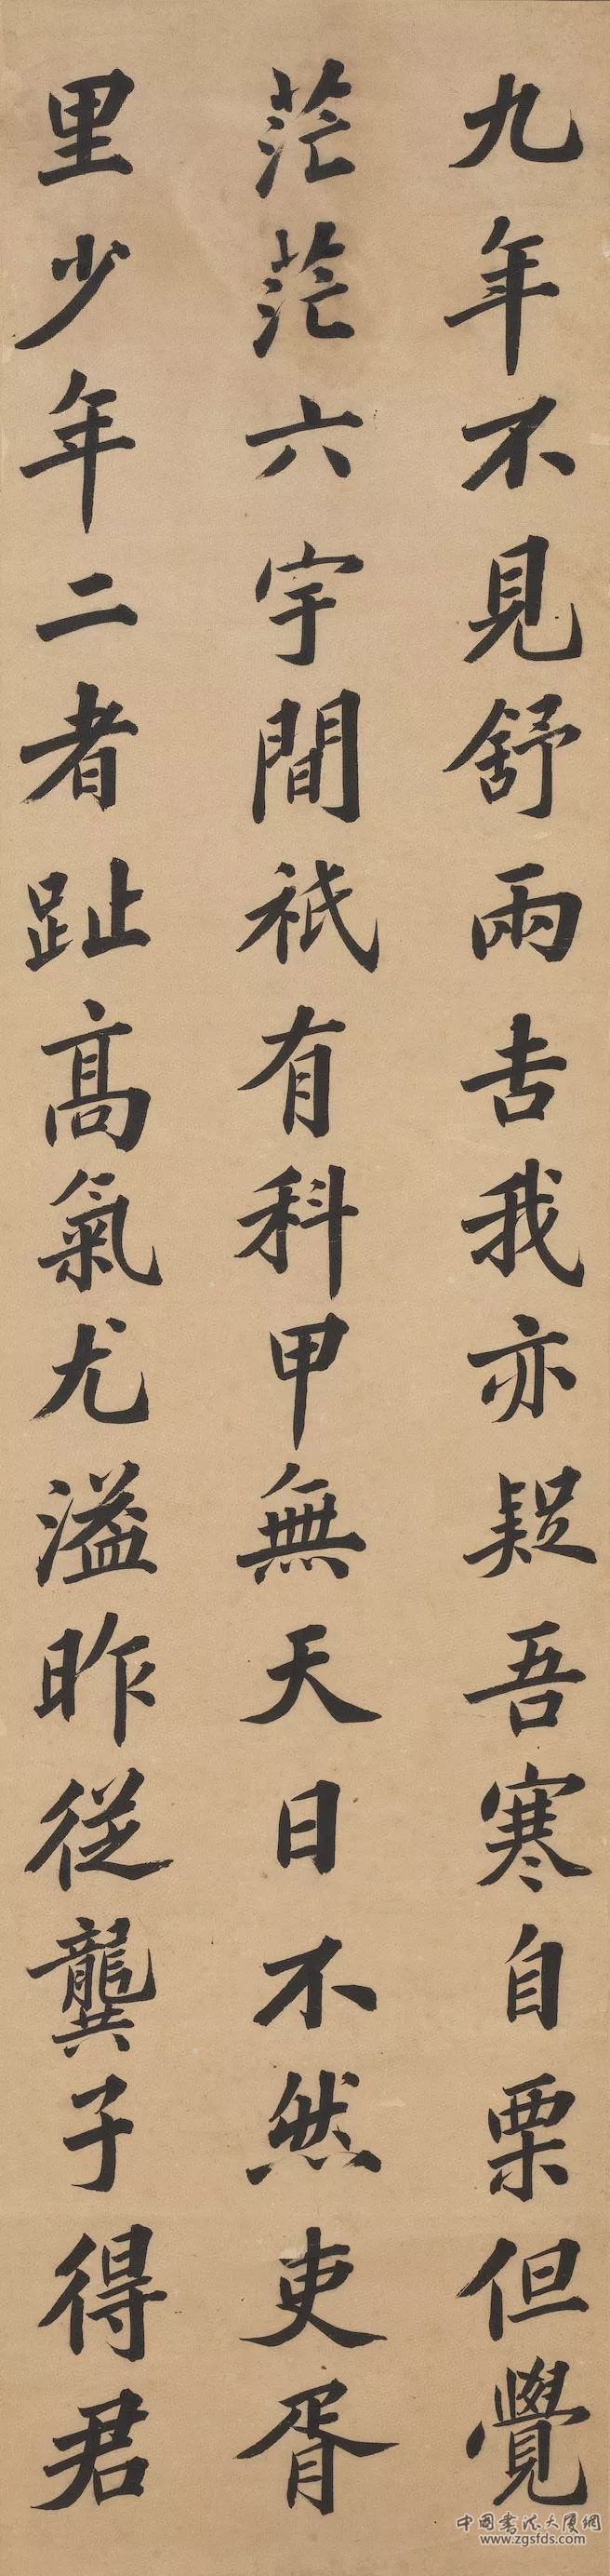 九年不見舒兩吉我亦疑吾寒自栗但覺
茫茫六宇間祇有科甲無天日不然吏胥
里少年二者趾高氣尤溢昨從龔子得君
中國書法大廈網
www.zgsfds.com